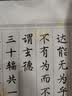 达能无为乎
不有为而不
谓玄德
三十辐共一